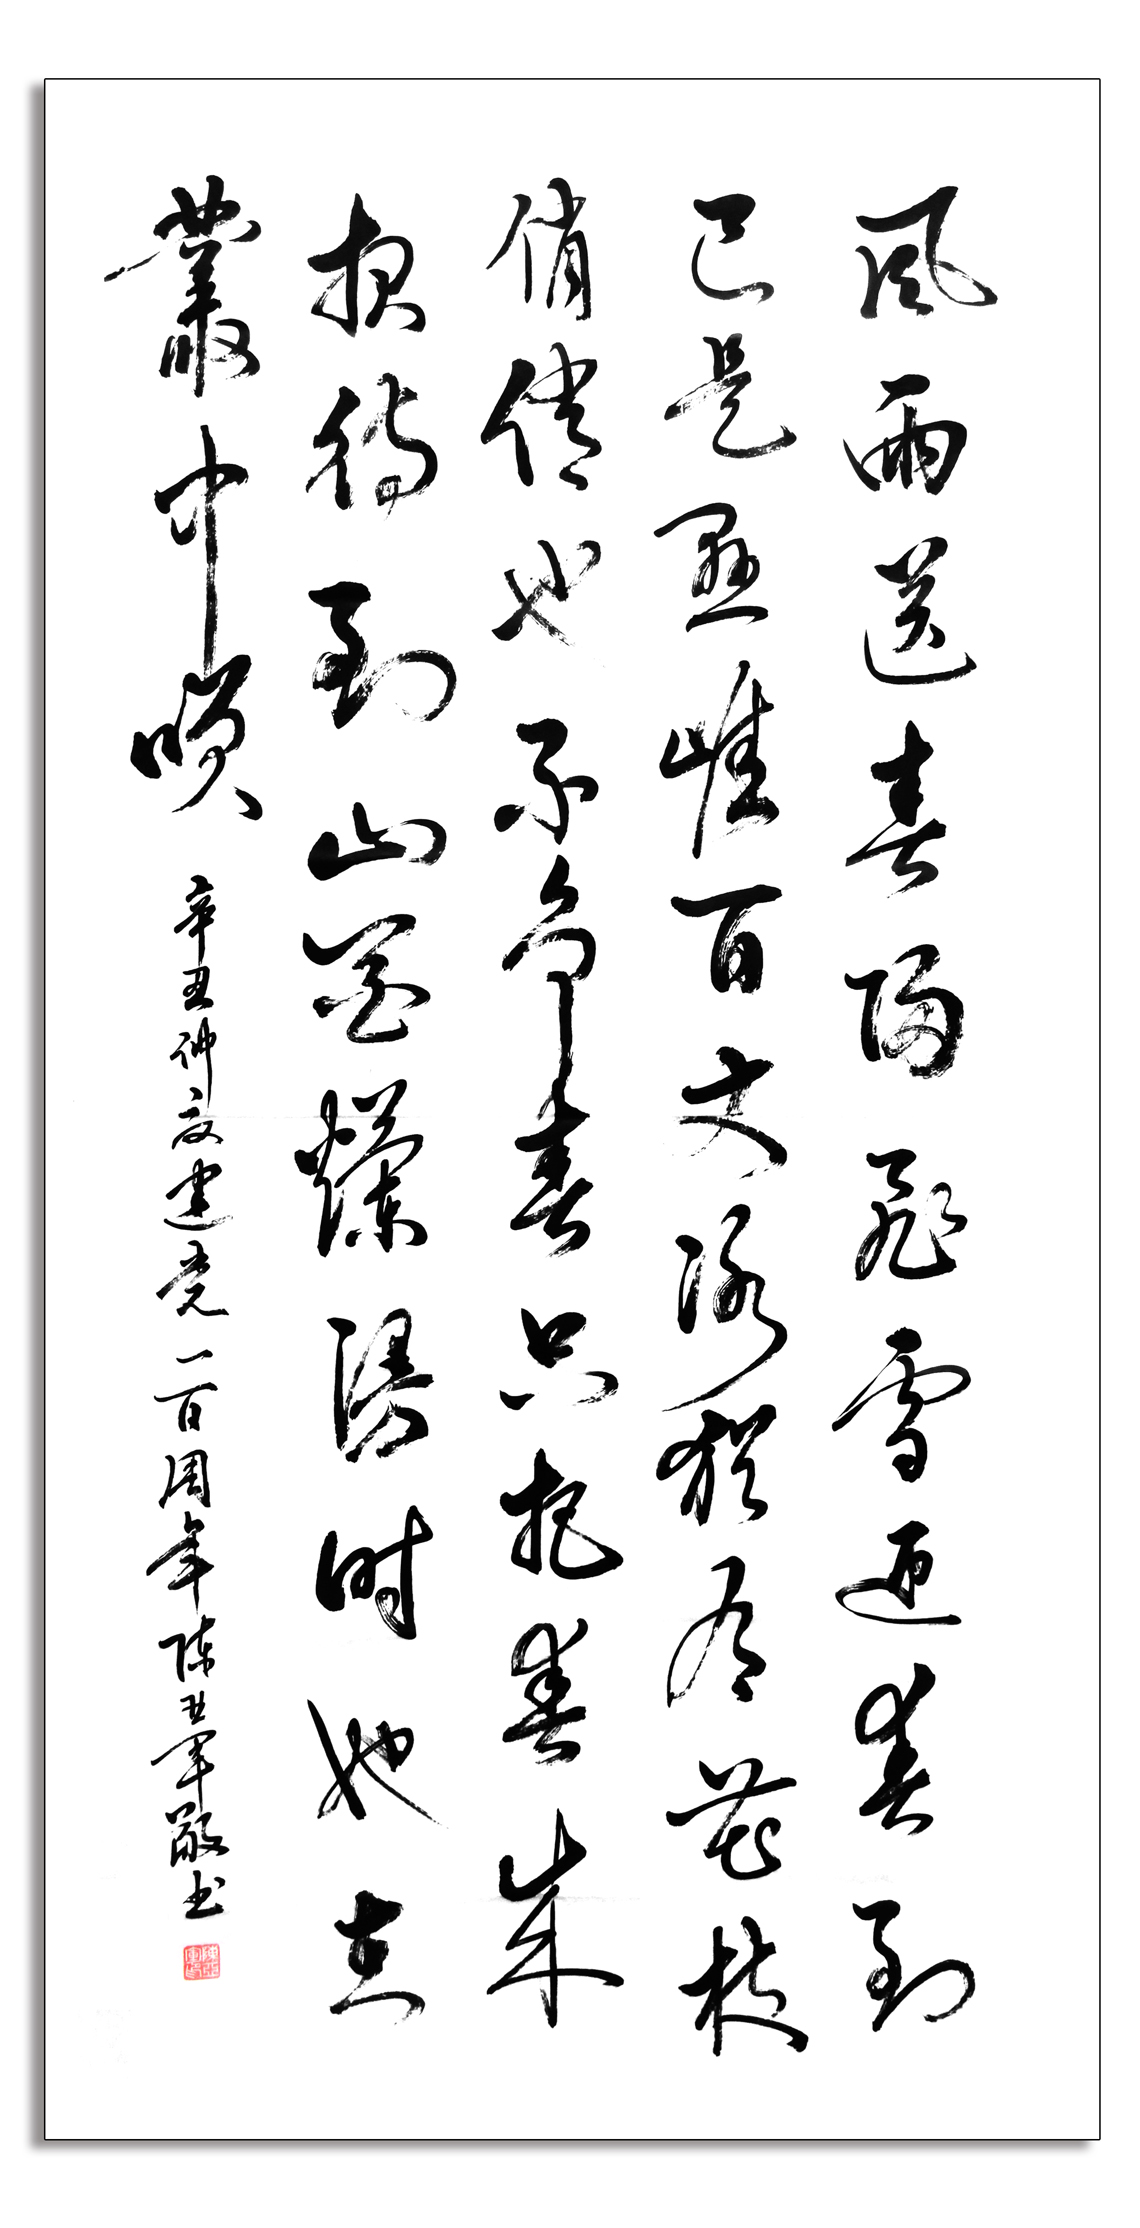 风雨送春归飞雪迎春到
已是悬崖百丈冰犹有花枝
俏俏也不争春只把春来
报待到山花爛漫时她在
叢中笑
辛丑仲夏建党一百周年陈亚军敬书